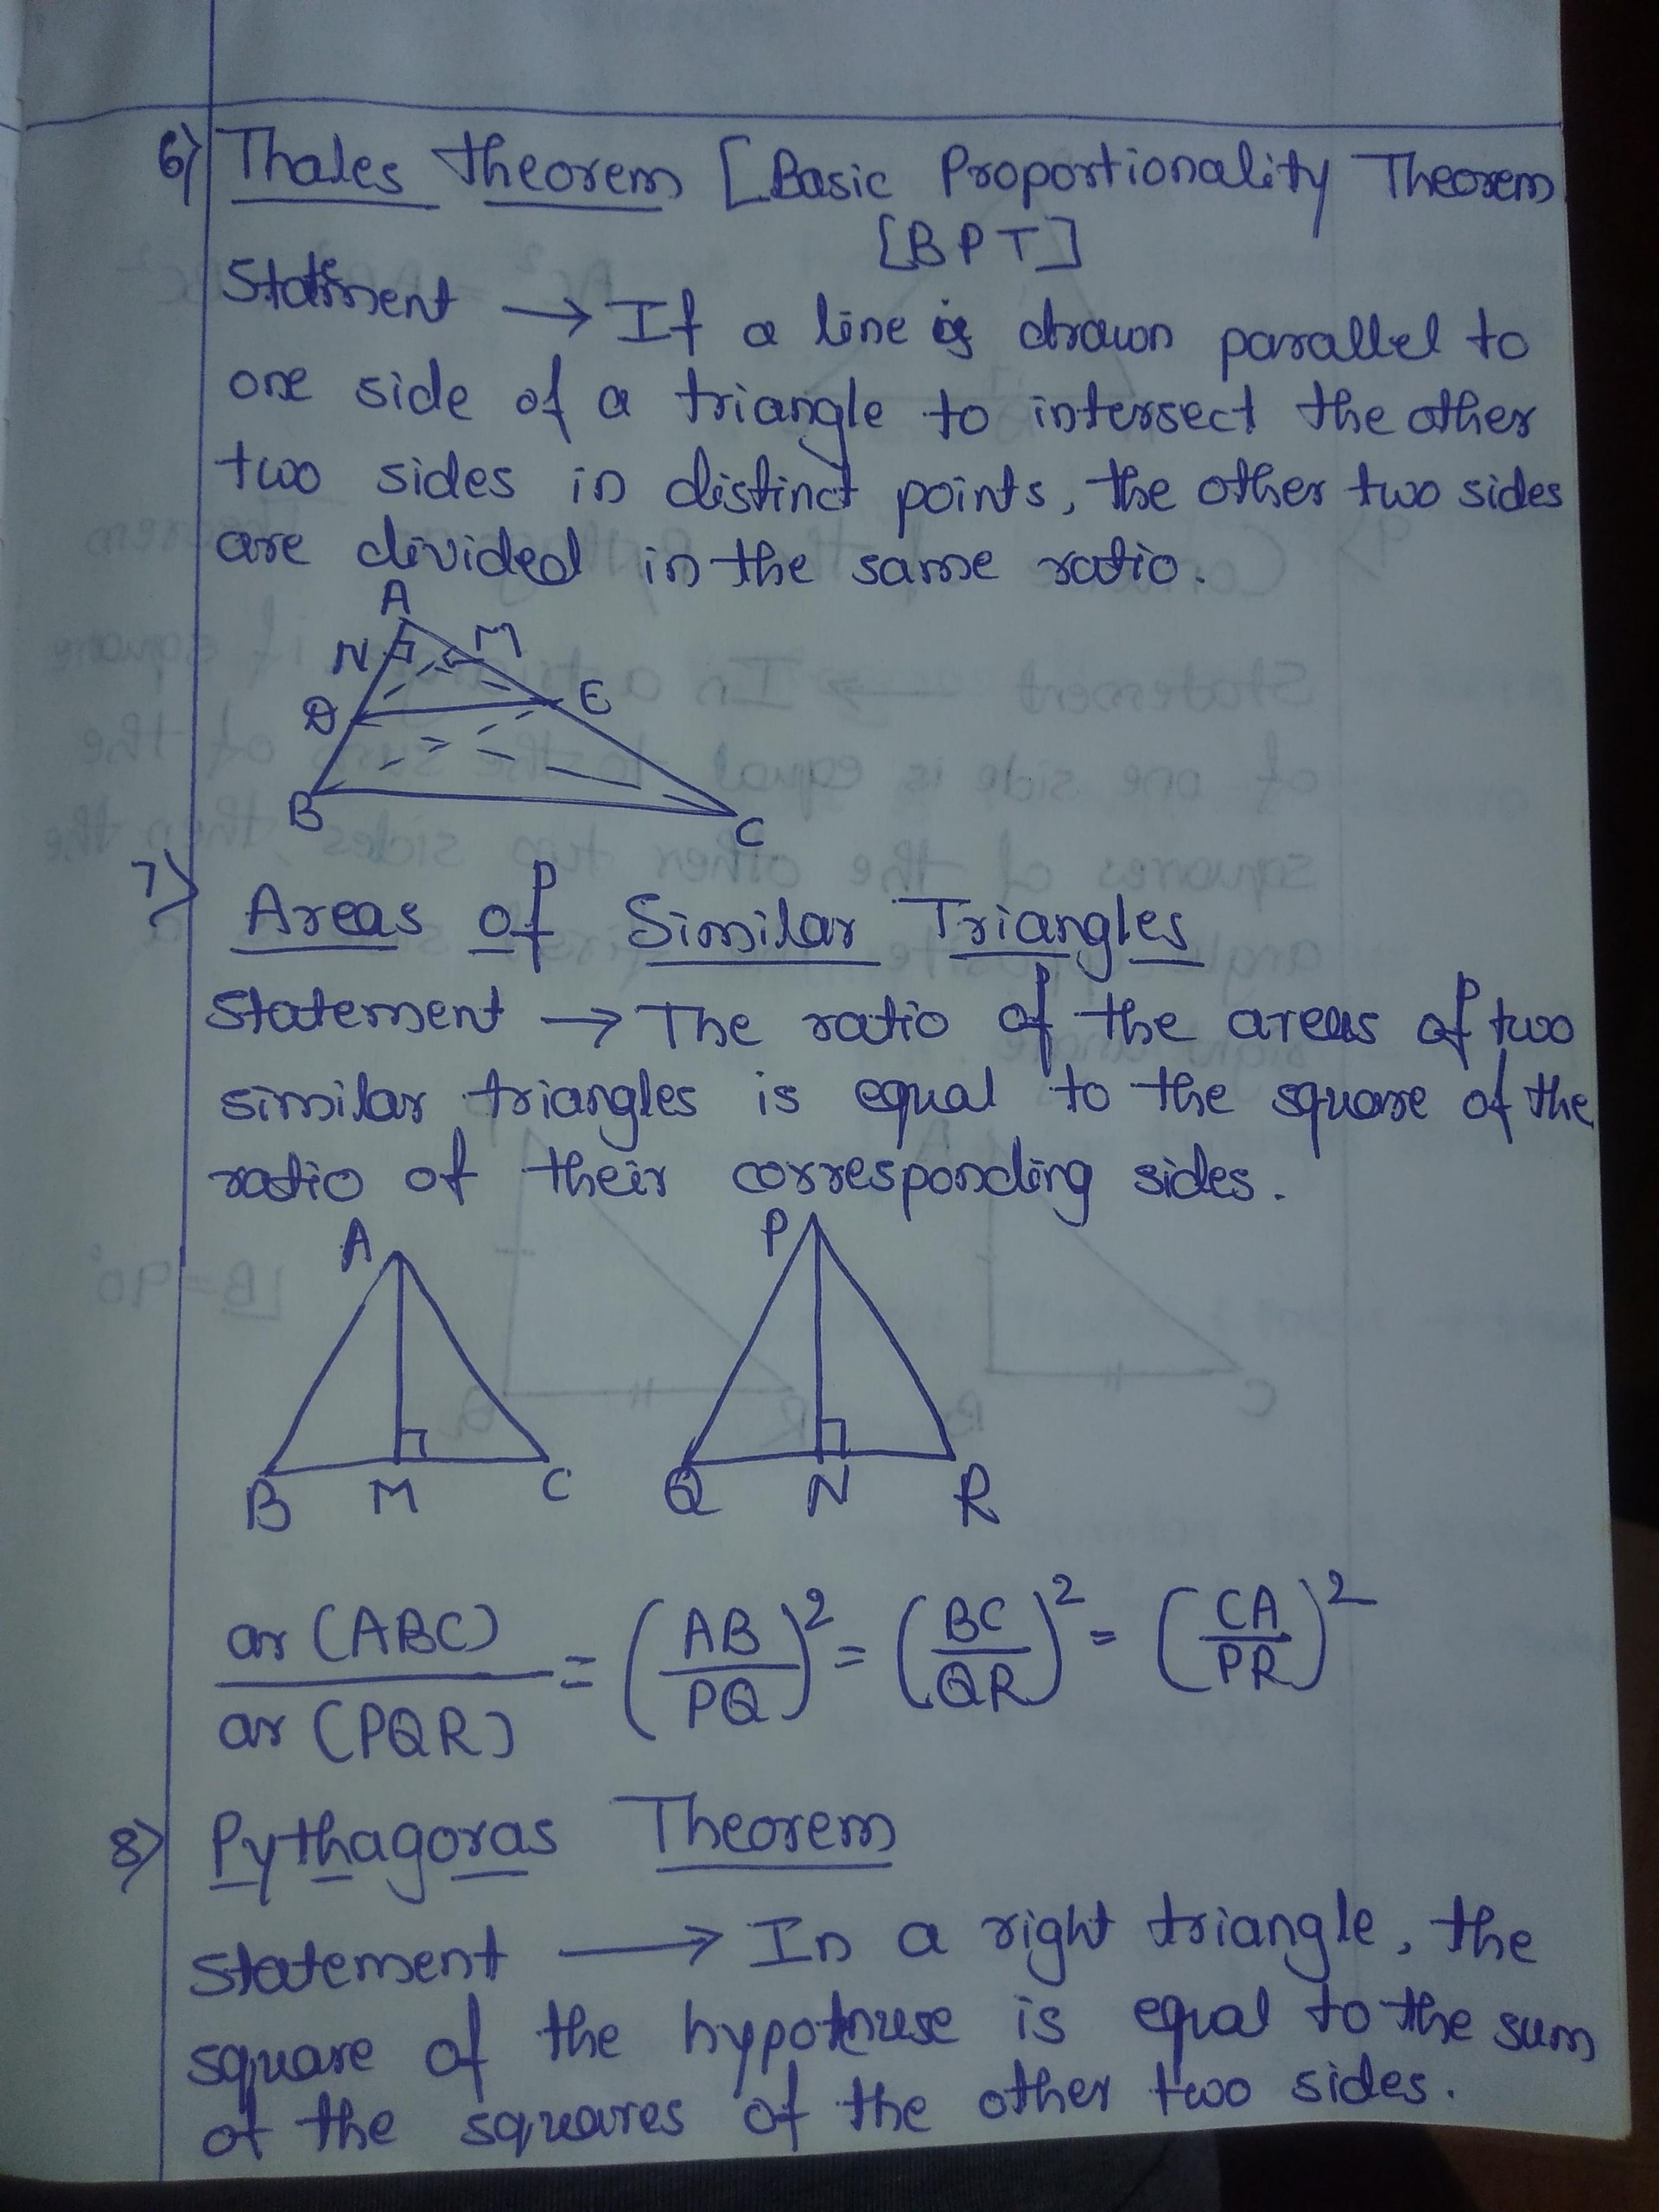 6) Thales Theorem [Basic Proportionality Theorem
[BPT]
Statement → If a line is drawn parallel to
one side of a triangle to intersect the other
two sides in distinct points, the other two sides
are divided in the same ratio.
A
N M
D E
B C
7) Areas of Similar Triangles
Statement → The ratio of the areas of two
similar triangles is equal to the square of the
ratio of their corresponding sides.
A P
B M C Q N R
ar (ABC) / ar (PQR) = (AB/PQ)² = (BC/QR)² = (CA/PR)²
8) Pythagoras Theorem
Statement → In a right triangle, the
square of the hypotnuse is equal to the sum
of the squares of the other two sides.